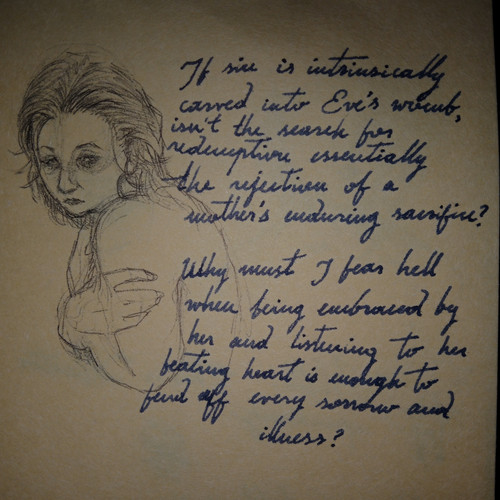 If sin is intrinsically
carved into Eve's womb,
isn't the search for
redemption essentially
the rejection of a
mother's enduring sacrifice?
Why must I fear hell
when being embraced by
her and listening to her
beating heart is enough to
fend off every sorrow and
illness?